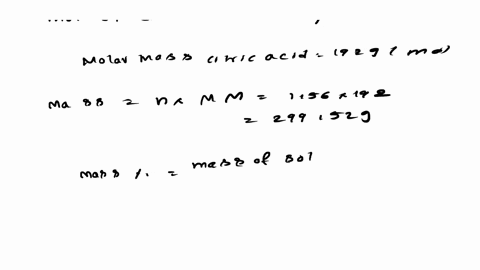 Molar Mass citric acid = 192 g ( mol
Mass = n x MM = 1.56 x 192
= 299.52g
mass of sol
mass % =